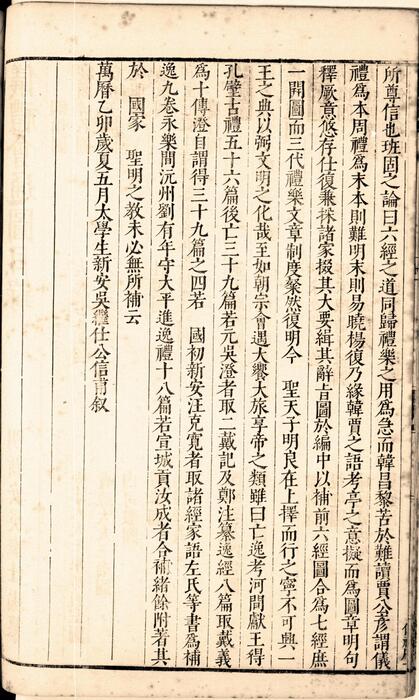 所尊信也班固之論曰六經之道同歸禮樂之用爲急而韓昌黎苦於難讀賈公彥謂儀
禮爲本周禮爲末本則難明末則易曉楊復乃緣韓賈之語考亭之意擬而爲圖章明句
釋厥意悠存仕復兼採諸家掇其大要緝其辭旨圖於編中以補前六經圖合爲七經庶
一開圖而三代禮樂文章制度粲然復明今 聖天子明良在上擇而行之寧不可興一
王之典以弼文明之化哉至如朝宗會遇大饗大旅享帝之類雖曰亡逸考河間獻王得
孔壁古禮五十六篇後亡三十九篇若元吳澄者取二戴記及鄭注纂逸經八篇取戴義
爲十傳澄自謂得三十九篇之四若 國初新安汪克寬者取諸經家語左氏等書爲補
逸九卷永樂間沅州劉有年守太平進逸禮十八篇若宣城貢汝成者合補緒餘附著其
於 國家 聖明之教未必無所補云
萬曆乙卯歲夏五月太學生新安吳繼仕公信甫敘